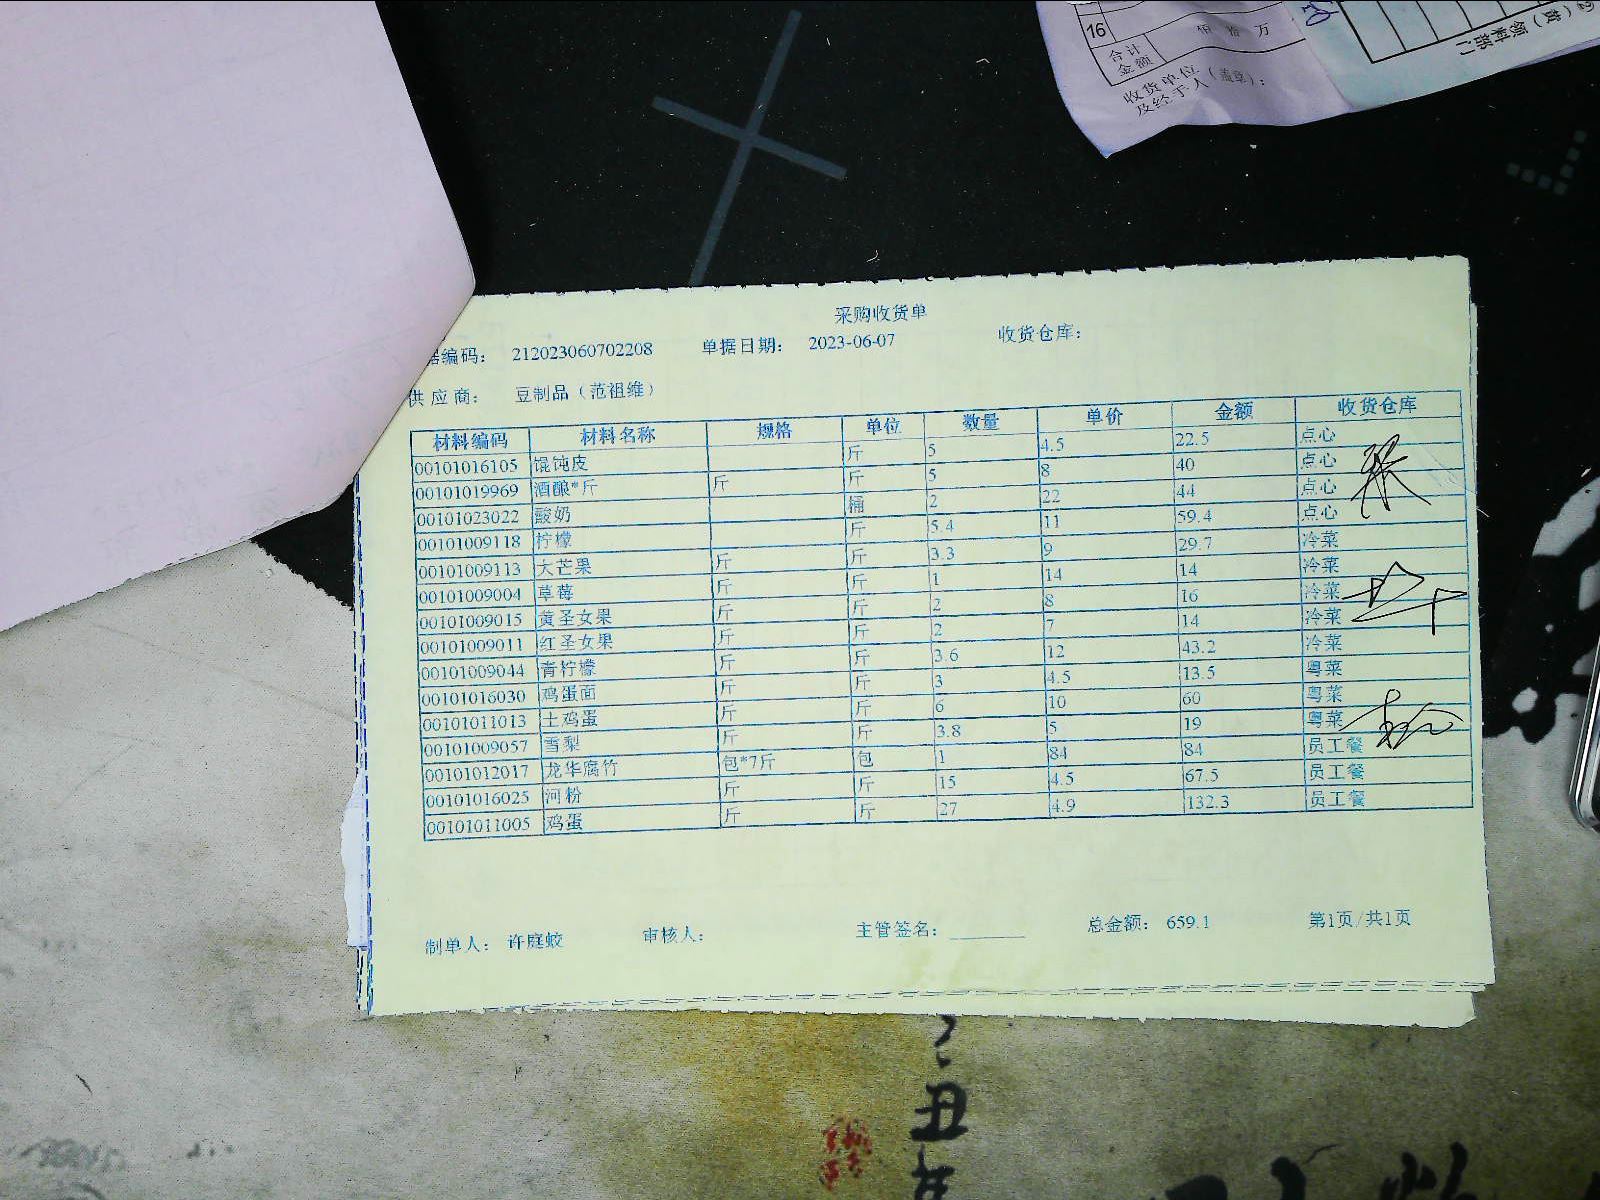 16
佰 拾 万
合计
金额
收货单位（盖章）：
及经手人
领料部门
采购收货单
据编码： 212023060702208 单据日期： 2023-06-07 收货仓库：
供应商： 豆制品（范祖维）
材料编码 材料名称 规格 单位 数量 单价 金额 收货仓库
00101016105 馄饨皮 斤 5 4.5 22.5 点心
00101019969 酒酿*斤 斤 斤 5 8 40 点心
00101023022 酸奶 桶 2 22 44 点心
00101009118 柠檬 斤 5.4 11 59.4 点心
00101009113 大芒果 斤 斤 3.3 9 29.7 冷菜
00101009004 草莓 斤 斤 1 14 14 冷菜
00101009015 黄圣女果 斤 斤 2 8 16 冷菜
00101009011 红圣女果 斤 斤 2 7 14 冷菜
00101009044 青柠檬 斤 斤 3.6 12 43.2 冷菜
00101016030 鸡蛋面 斤 斤 3 4.5 13.5 粤菜
00101011013 土鸡蛋 斤 斤 6 10 60 粤菜
00101009057 雪梨 斤 斤 3.8 5 19 粤菜
00101012017 龙华腐竹 包*7斤 包 1 84 84 员工餐
00101016025 河粉 斤 斤 15 4.5 67.5 员工餐
00101011005 鸡蛋 斤 斤 27 4.9 132.3 员工餐
制单人： 许庭蛟 审核人： 主管签名： 总金额： 659.1 第1页/共1页
丑